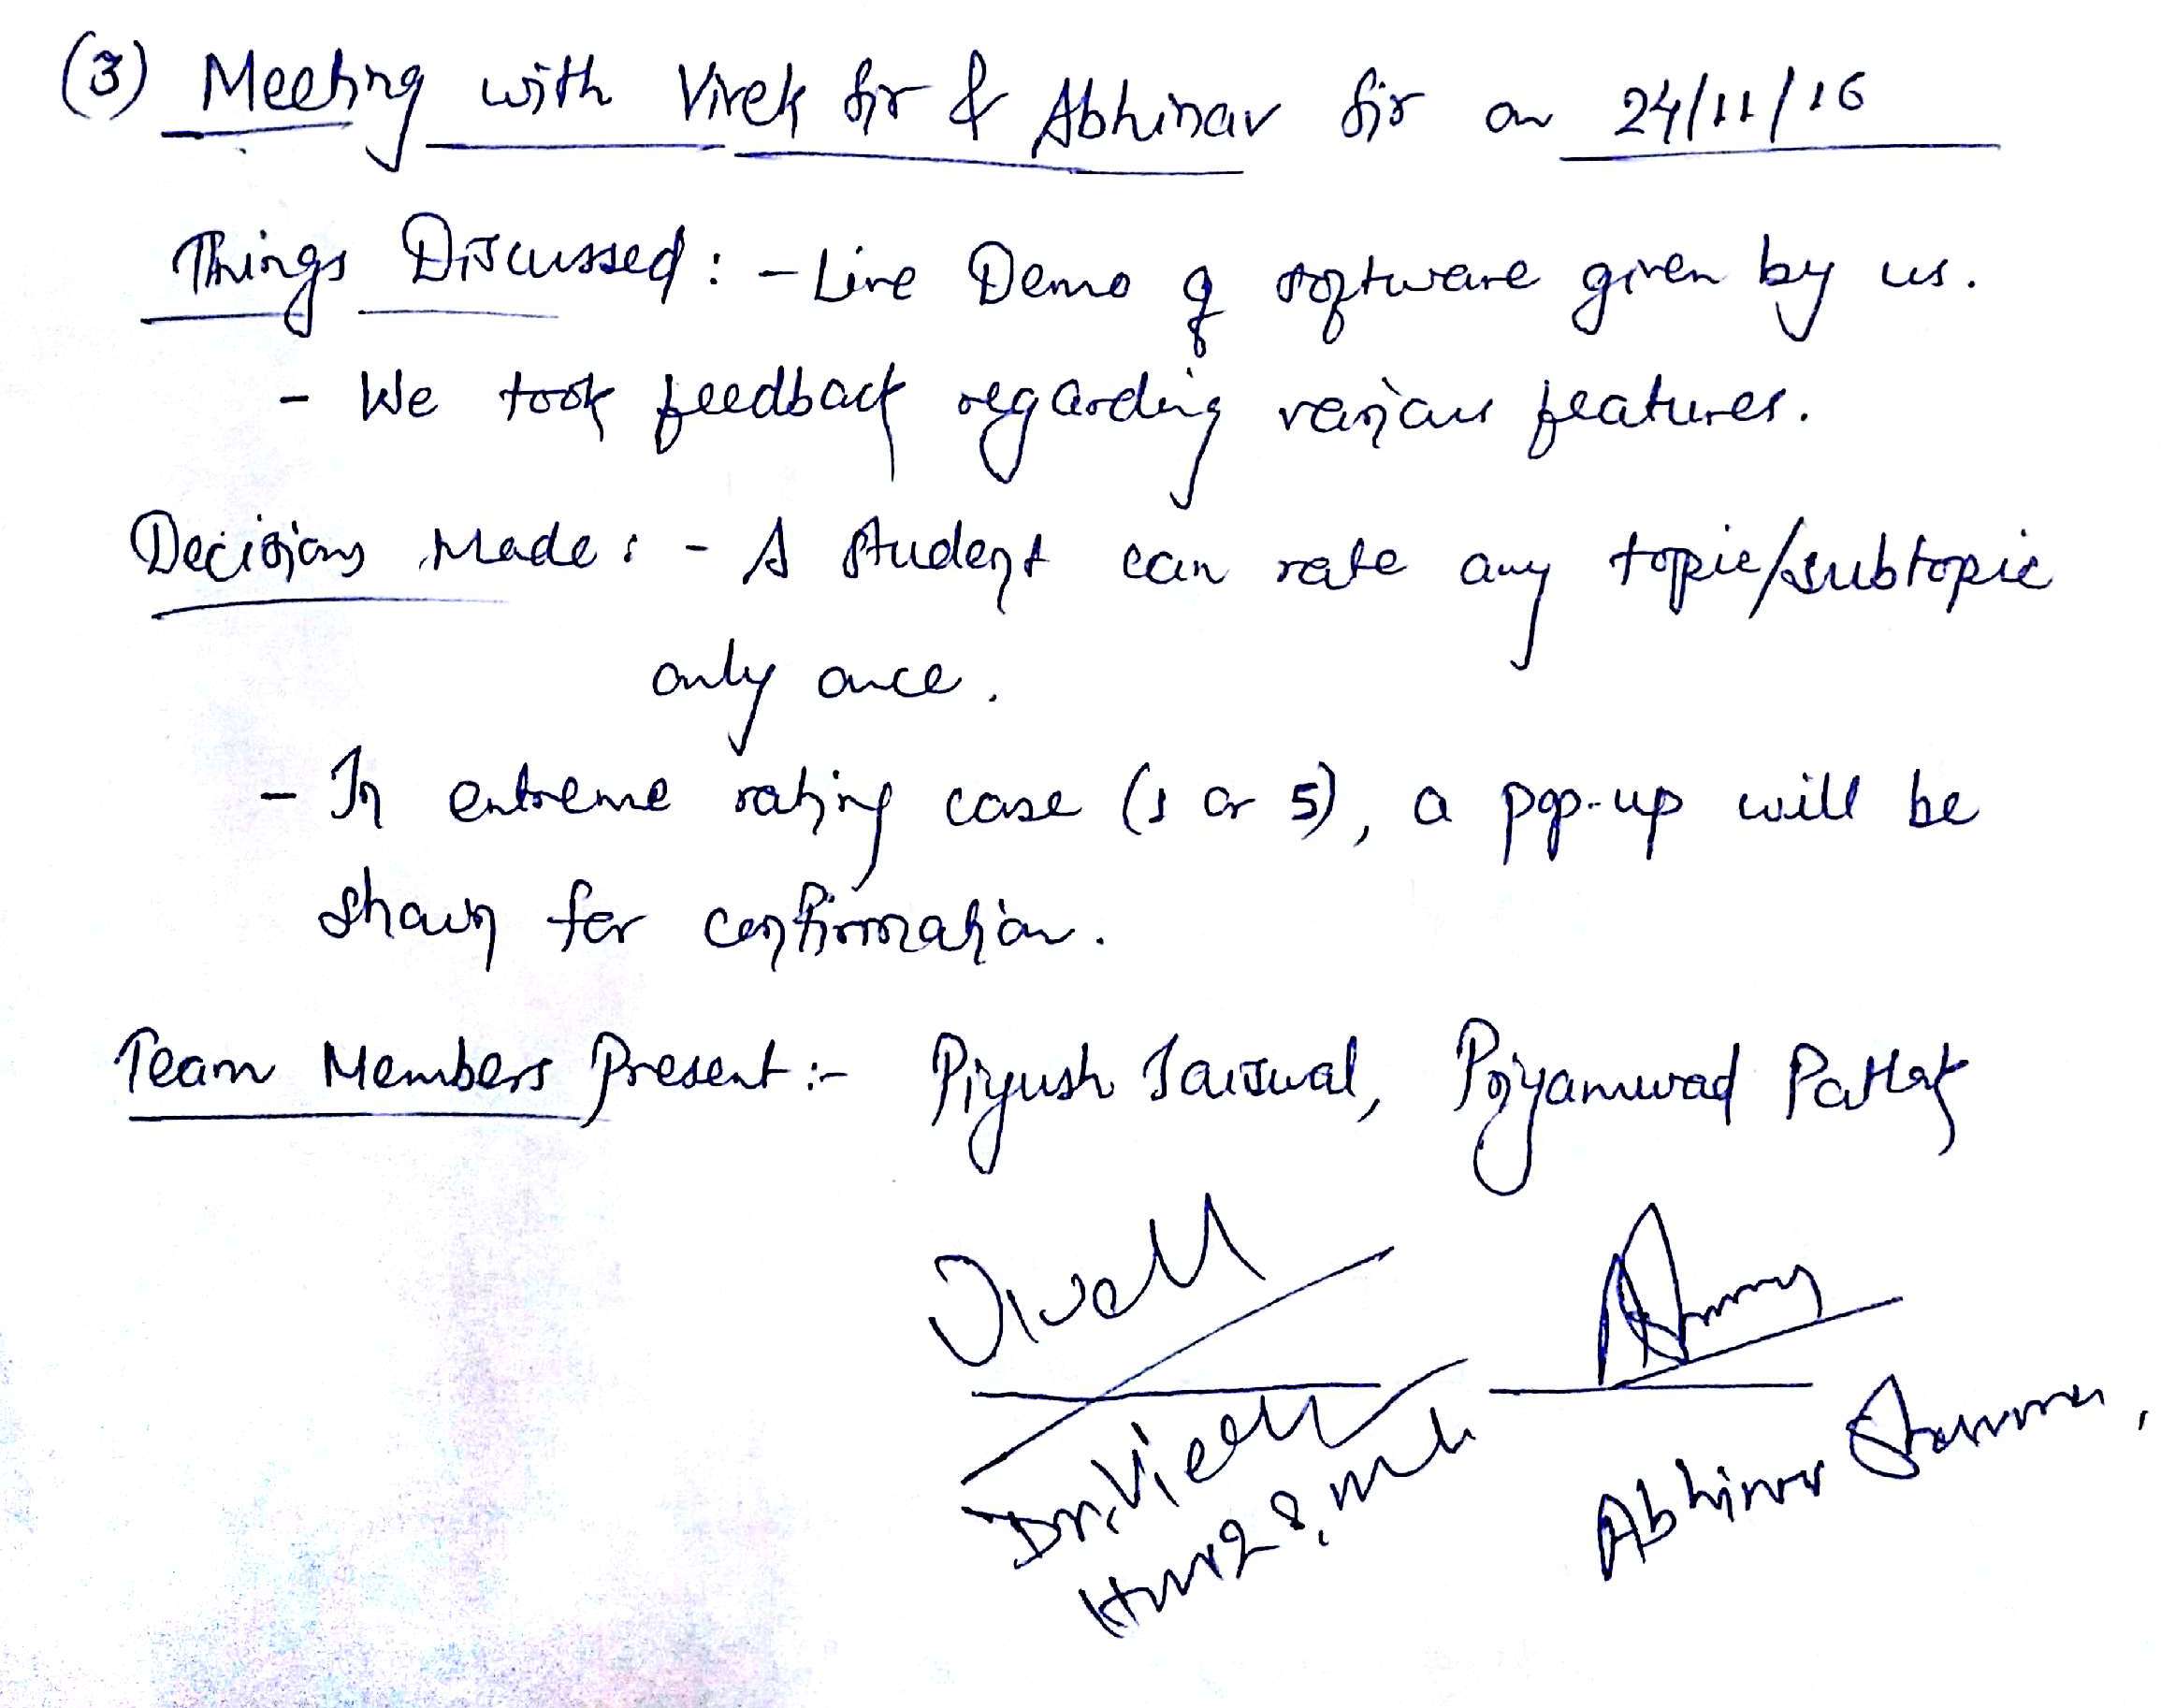 (3) Meeting with Vivek Sir & Abhinav Sir on 24/11/16
Things Discussed: - Live Demo of software given by us.
- We took feedback regarding various features.
Decisions Made: - A student can rate any topic/subtopic
only once.
- In extreme rating case (1 or 5), a pop-up will be
shown for confirmation.
Team Members Present :- Piyush Jaiswal, Priyamwad Pathak
Vivek
Dr. Vivek
Abhinav Sharma